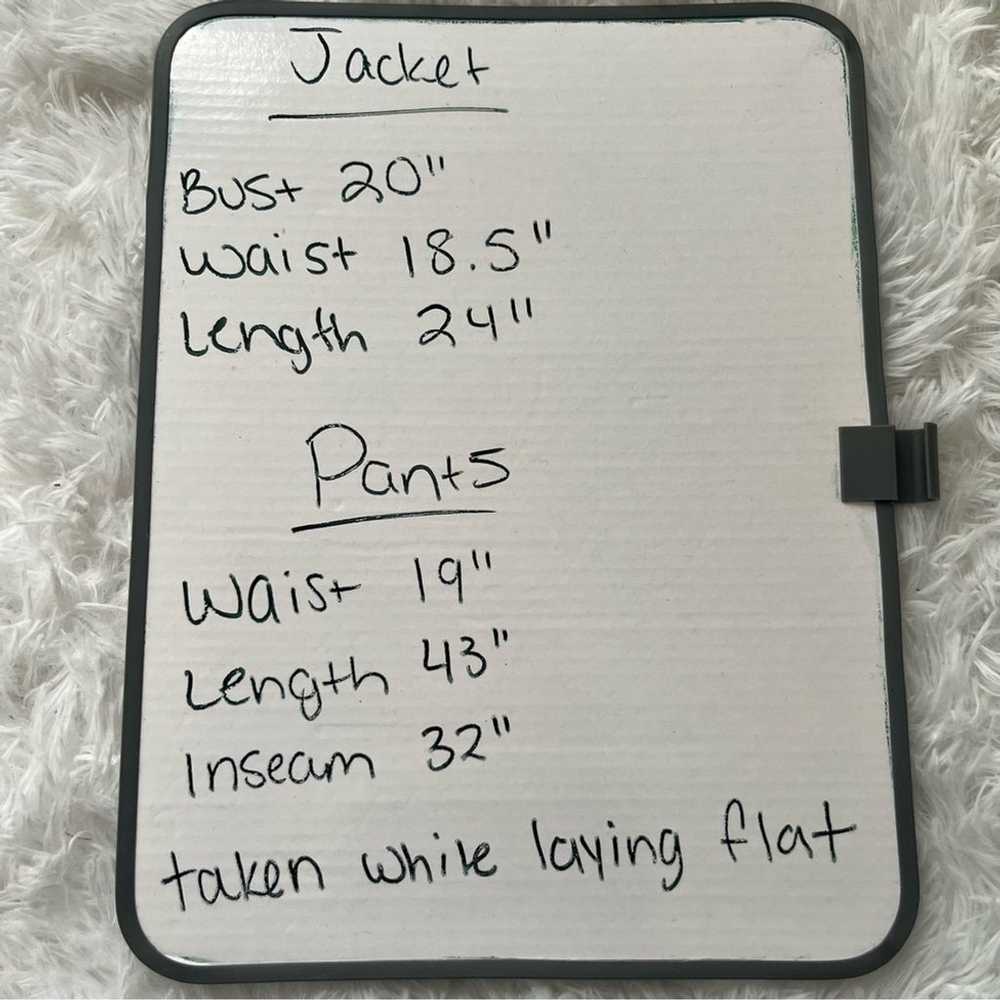 Jacket
Bust 20"
Waist 18.5"
Length 24"
Pants
Waist 19"
Length 43"
Inseam 32"
taken while laying flat